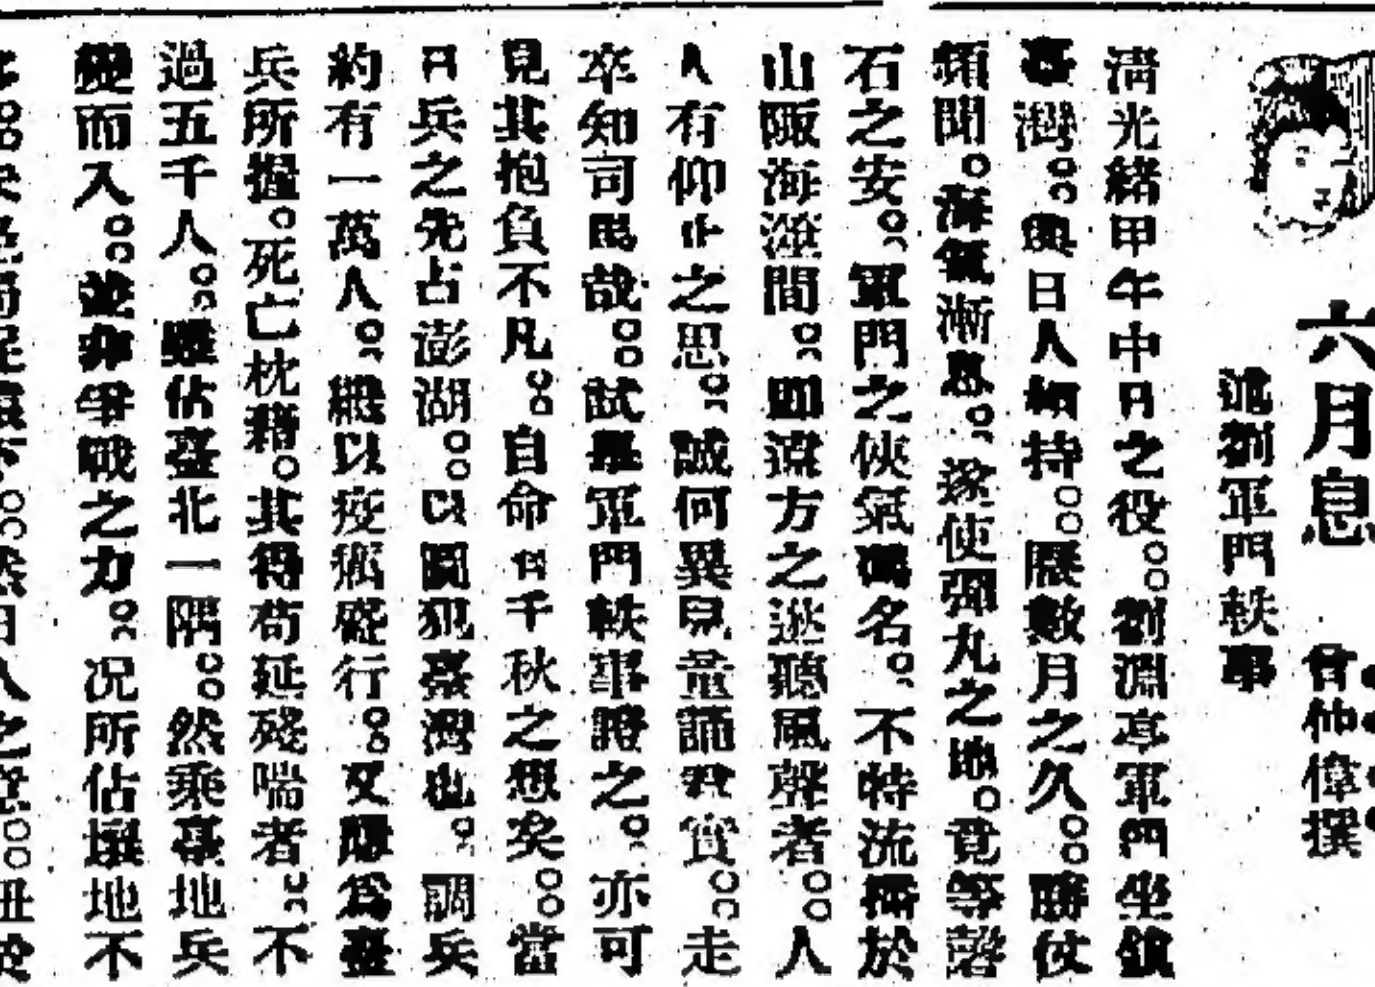 六月息 仲偉撰
劉軍門軼事
清光緒甲午中日之役。劉淵亭軍門坐鎮
臺灣。與日人相持。歷數月之久。勝仗
頻聞。海氛漸息。遂使彈丸之地。竟等磐
石之安。軍門之俠氣威名。不特流播於
山陬海澨間。即遠方之逖聽風聲者。人
人有仰止之思。誠何異兒童誦君實。走
卒知司馬哉。試畢軍門軼事證之。亦可
見其抱負不凡。自命有千秋之想矣。當
日兵之先占澎湖。以圖犯臺灣也。調兵
約有一萬人。繼以疫癘盛行。又際為臺
兵所握。死亡枕藉。其得苟延殘喘者。不
過五千人。雖佔臺北一隅。然乘臺地兵
變而入。並非爭戰之力。况所佔壤地不